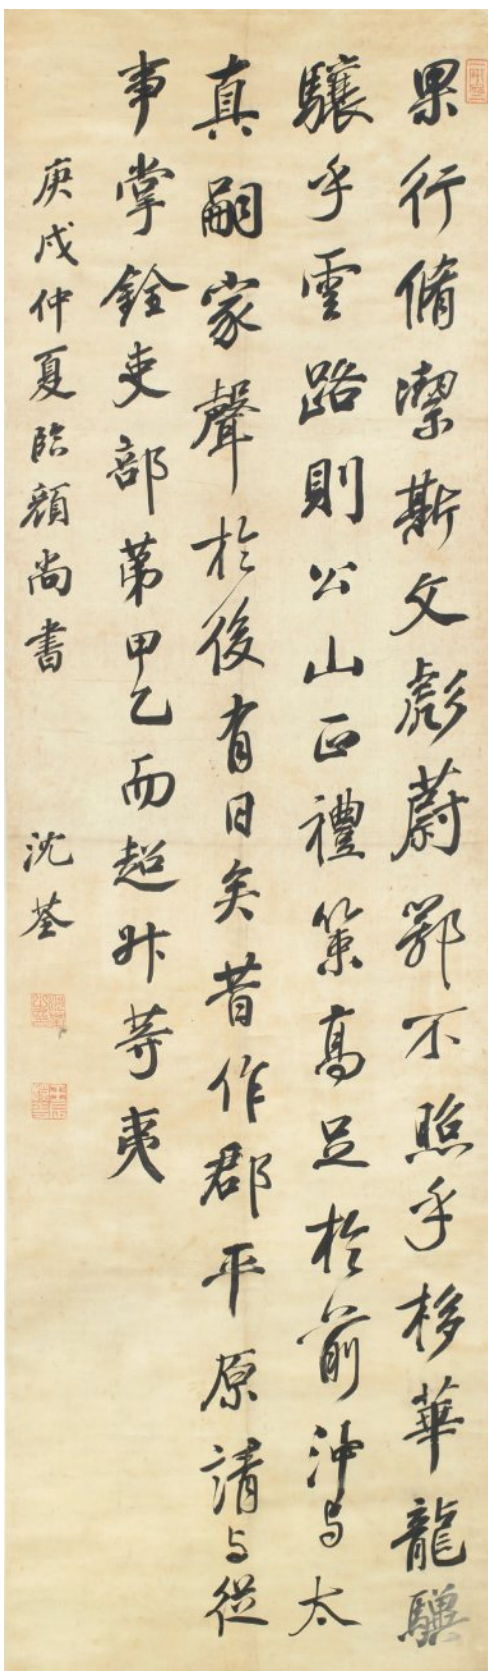 果行脩潔斯文彪蔚鄂不照乎栘華龍驥
驤乎雲路則公山正禮策高足於前沖与太
真嗣家聲於後有日矣昔作郡平原請与從
事掌銓吏部第甲乙而超升等夷
庚戌仲夏臨顏尚書
沈荃